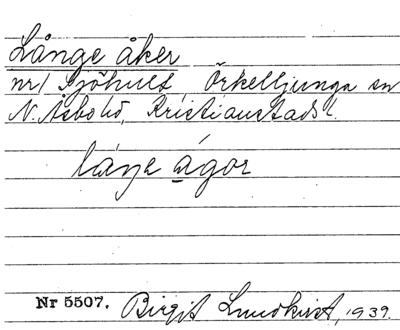 Långe åker
nr 1 Sjöhult, Örkelljunga sn
N. Åsbo hd, Kristianstads l.
låŋe ågor
Nr 5507. Birgit Lundkvist, 1939.